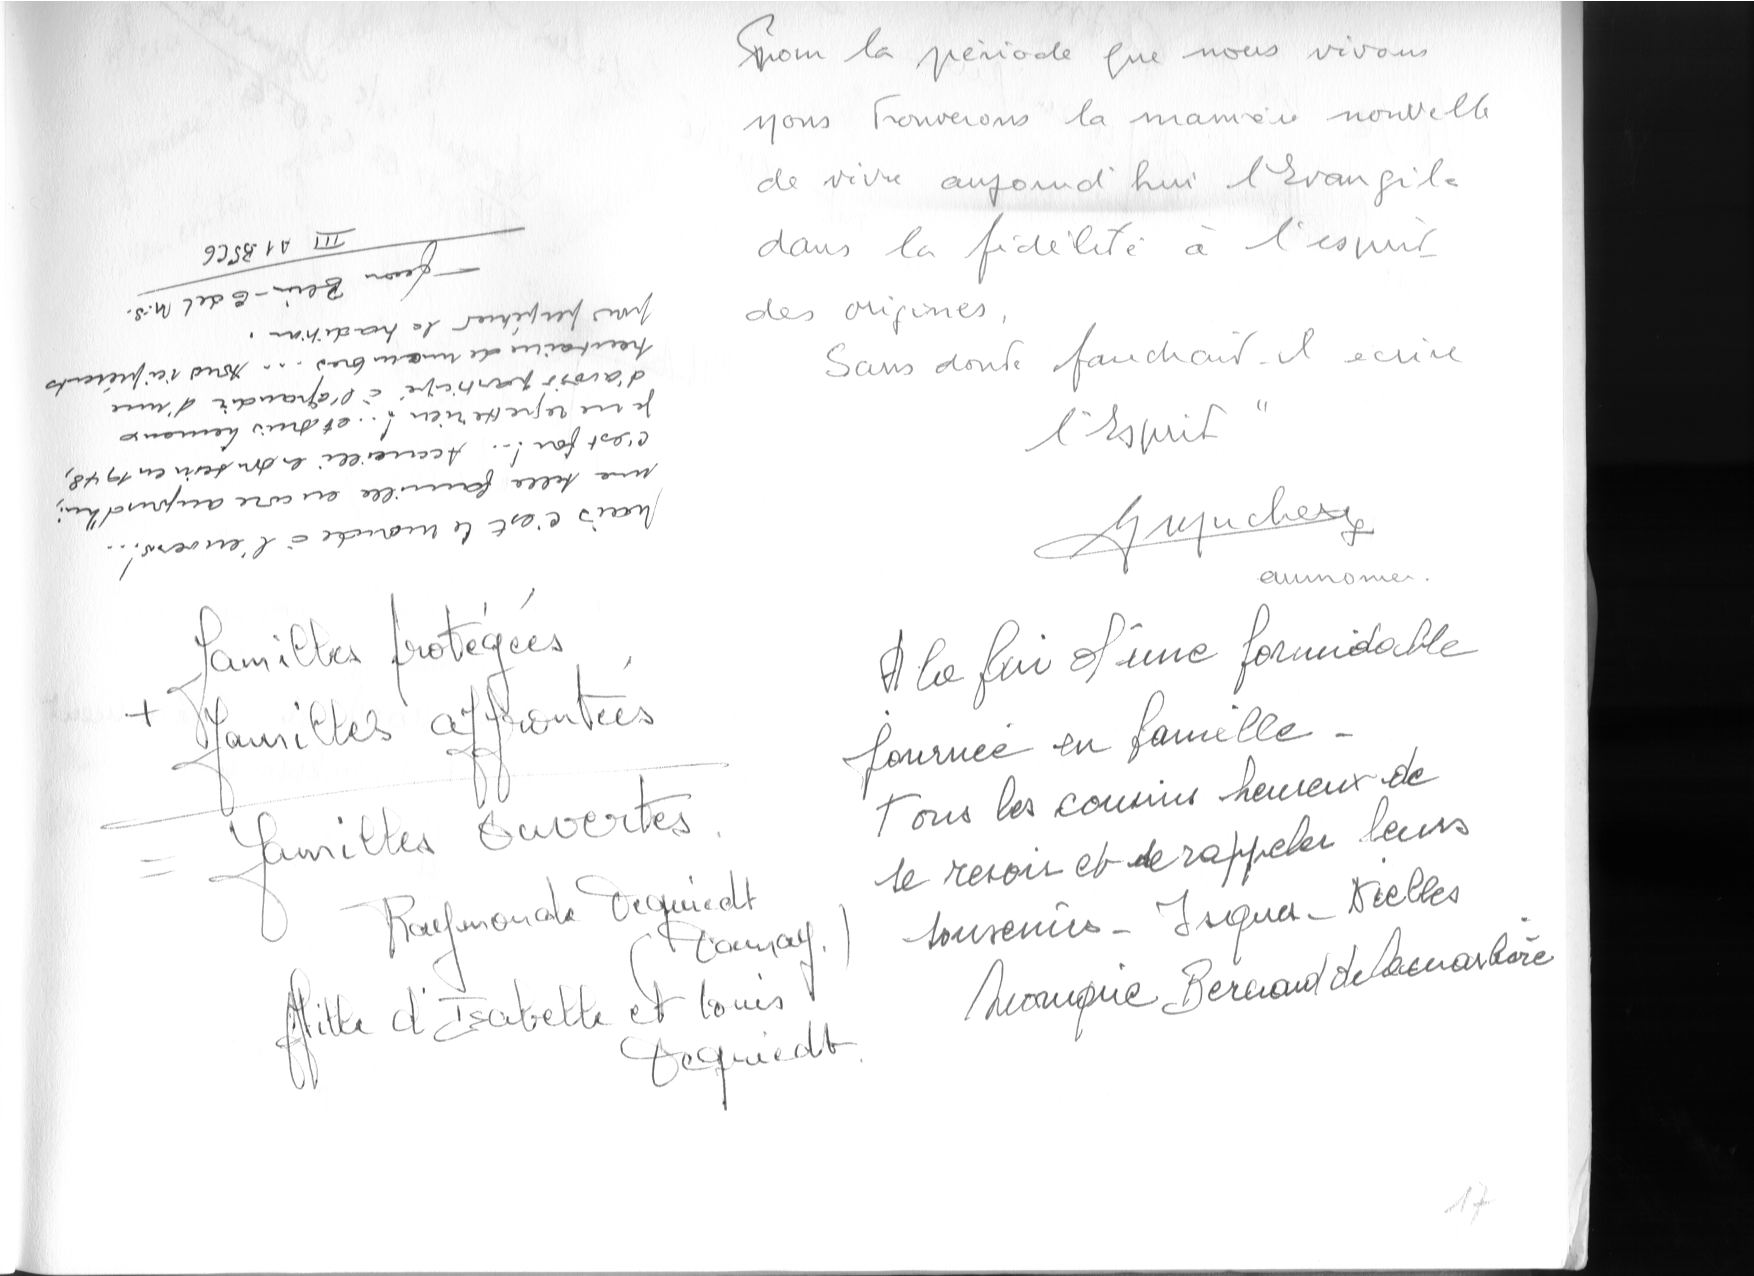 pour la période que nous vivons
nous trouverons la manière nouvelle
de vivre aujourd'hui l'Evangile
dans la fidélité à l'esprit
des origines,
Sans doute faudrait-il ecrire
l'Esprit"
aumonier.
Mais c'est le monde à l'envers!...
une telle famille encore aujourd'hui,
c'est fou!... Accueilli en son sein en 1948,
je ne regrette rien!... et suis heureux
d'avoir participé à l'agrandir d'une
trentaine de membres... tous
pour perpétuer la tradition.
Jean
III A1B5C6
familles protégées
+ familles affrontées
= familles ouvertes.
Raymonde Dequiedt
(Tournay.)
fille d'Isabelle et Louis
Dequiedt.
A la fin d'une formidable
journée en famille -
Tous les cousins heureux de
se revoir et de rappeler leurs
souvenirs - Isques - Nielles
Monique Bernard de Lamarlière
17